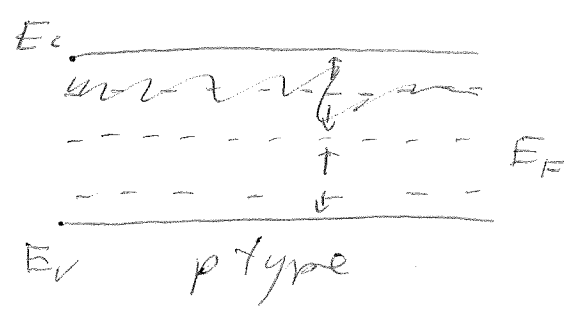 Ec
EF
Ev
p type